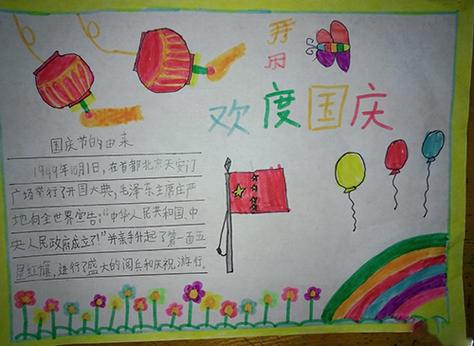 欢度国庆
国庆节的由来
1949年10月1日,在首都北京天安门
广场举行了开国大典,毛泽东主席庄严
地向全世界宣告:“中华人民共和国,中
央人民政府成立了!”并亲手升起了第一面五
星红旗,进行了盛大的阅兵和庆祝游行.